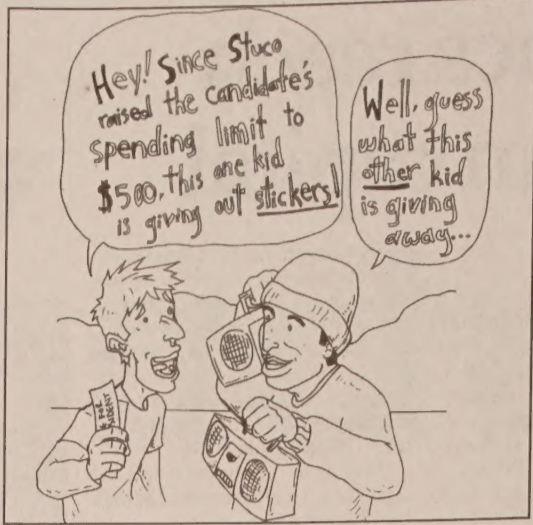 Hey! Since Stuco
raised the candidate's
spending limit to
$500, this one kid
is giving out stickers!
Well, guess
what this
other kid
is giving
away...
FOR